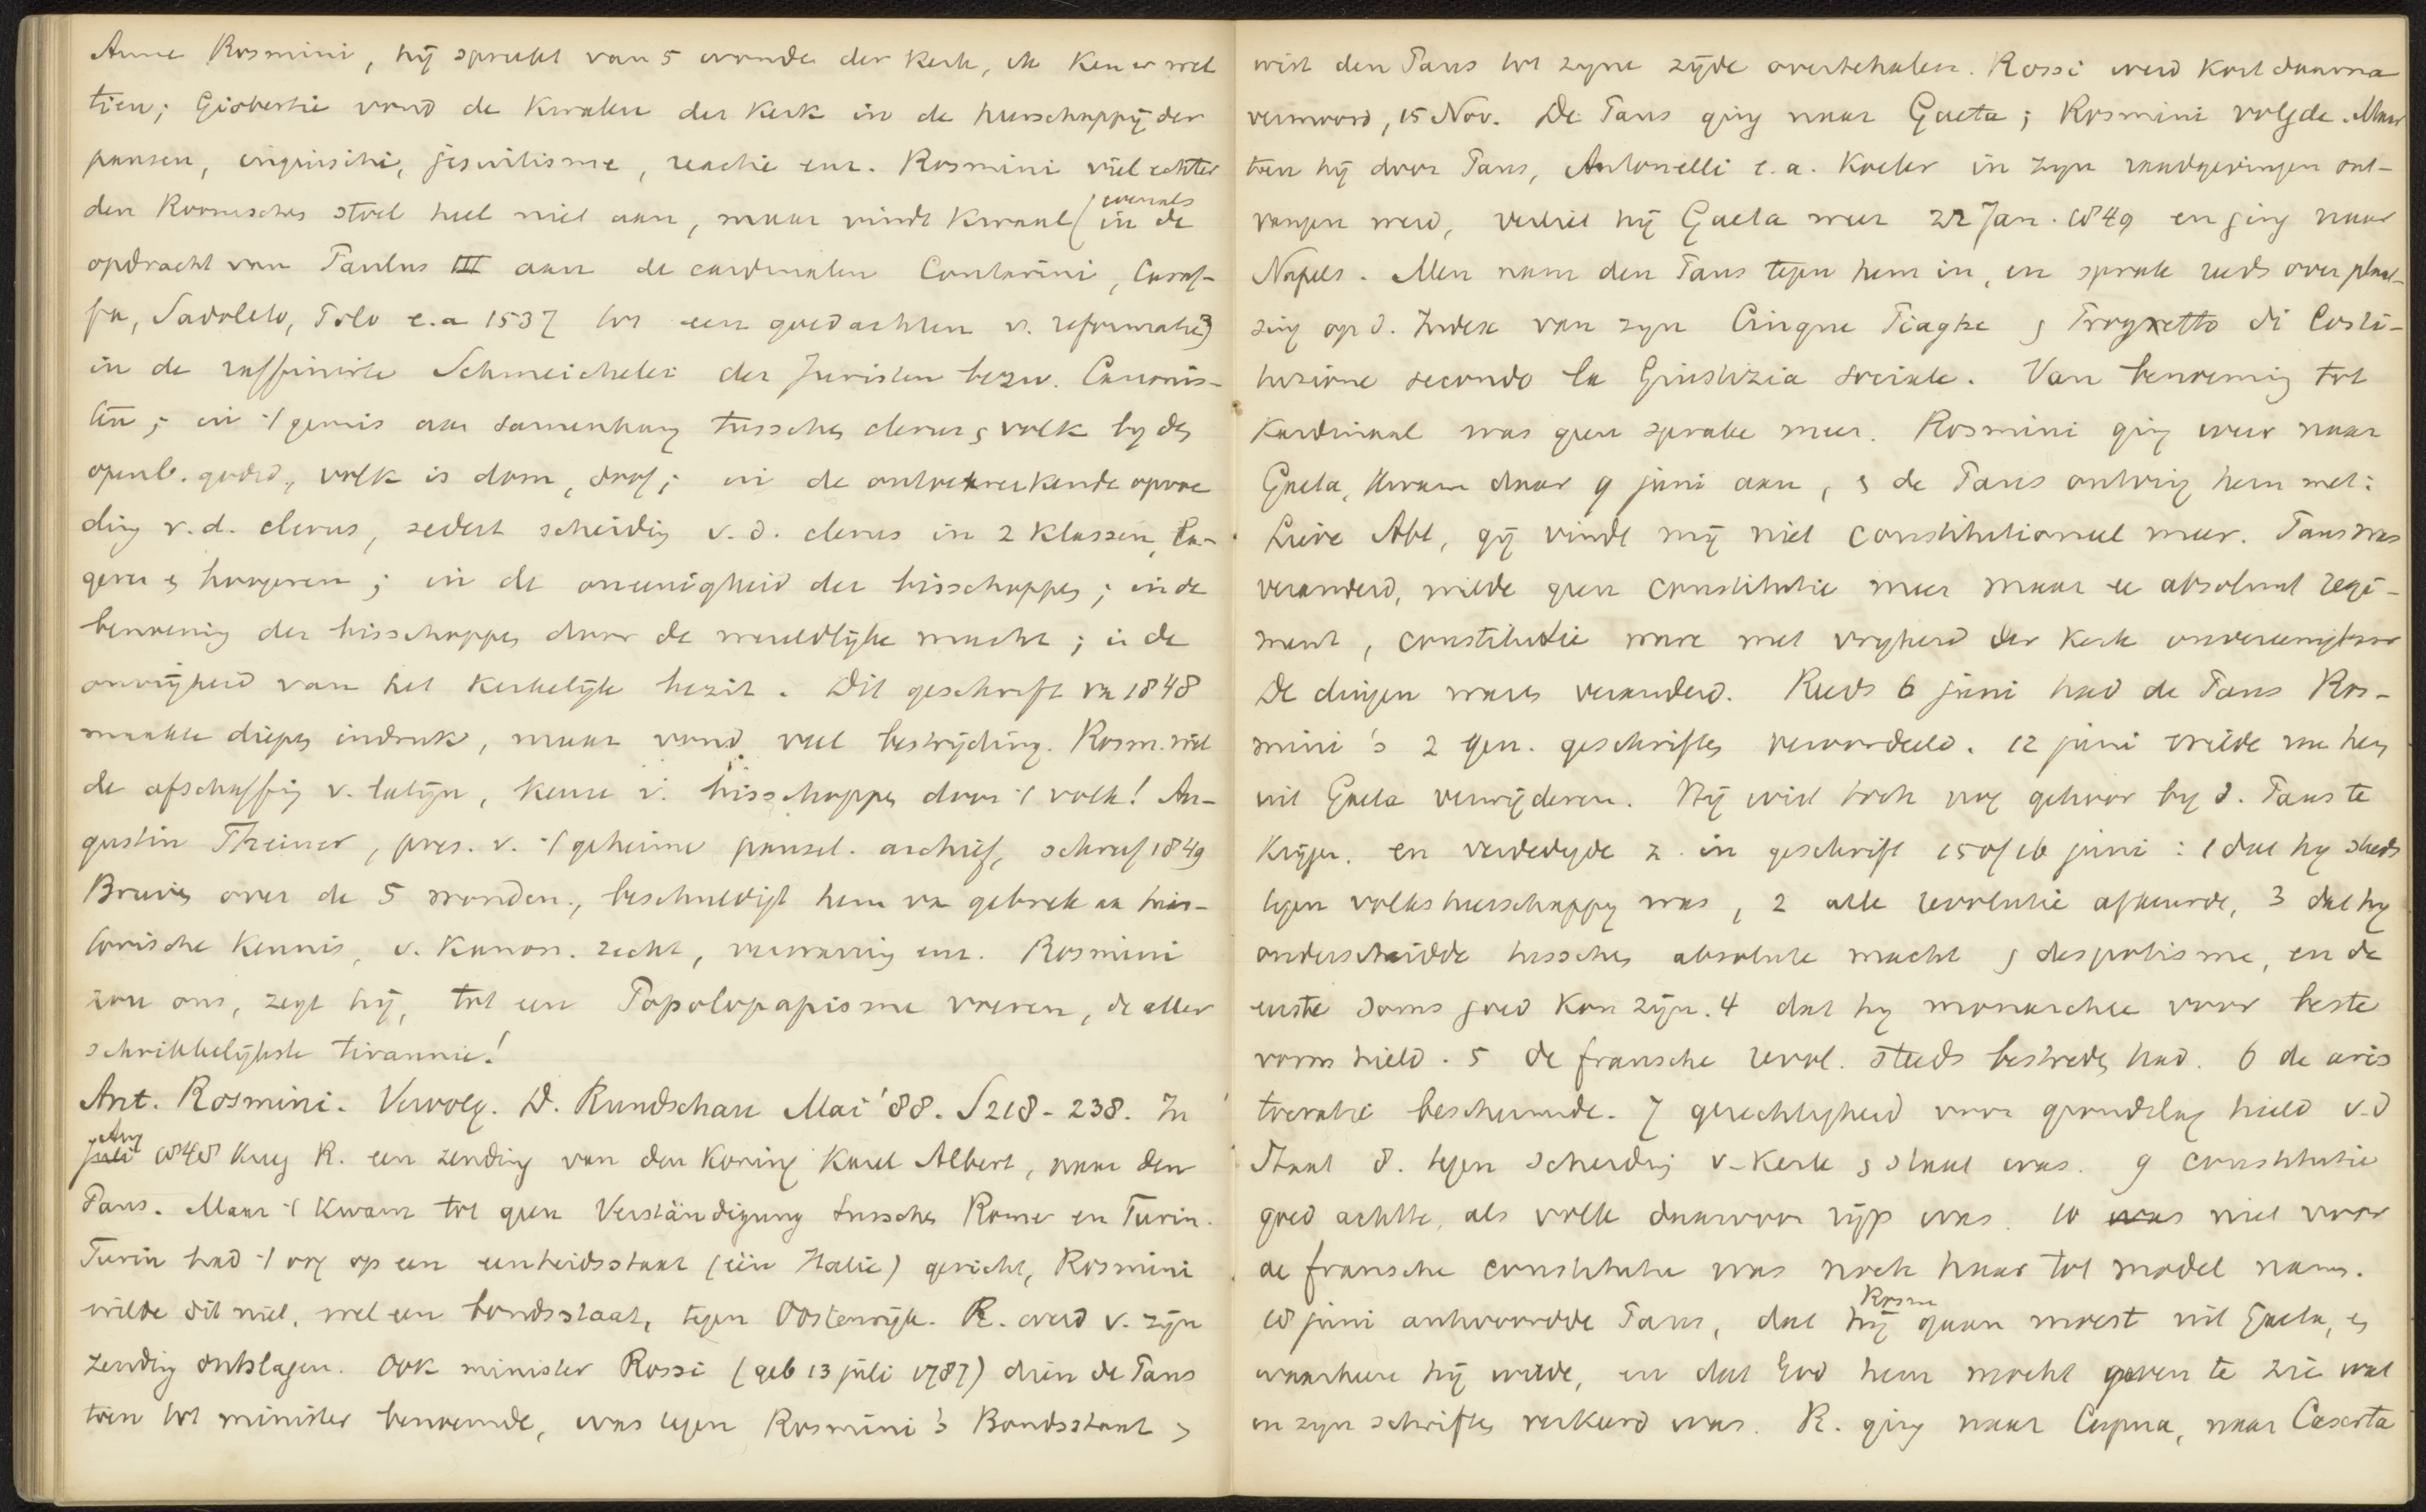 Arme Rosmini, hij spreekt van 5 wonden der kerk, ik ken er wel
tien; Giobertie vond de kwalen der kerk in de heerschappij der
pausen, inquisitie, jesuitisme, reactie enz. Rosmini viel echter
den Roomschen stoel heel niet aan, maar vindt kwaal (evenals in de
opdracht van Paulus III aan de cardinalen Contarini, Caraf-
fa, Sadoleto, Polo e.a 1537 tot een goedachten v. reformatie)
in de raffinirte Schmeichelei der Juristen bezw. Canonis-
ten; in 't gemis aan samenhang tusschen clerus & volk by den
openb. godsd., volk is dom, doof; in de ontoereikende opvoe
ding v.d. clerus, sedert scheiding v.d. clerus in 2 klassen, la-
geren & hoogeren; in de oneenigheid der bisschoppen; in de
benoeming der bisschoppen door de wereldlijke macht; in de
onvrijheid van het kerkelijk bezit. Dit geschrift va 1848
maakte diepen indruk, maar vond veel bestrijding. Rosm. wil
de afschaffing v. latijn, keuze v. bisschoppen door 't volk! Au-
gustin Theiner, pres. v. 't geheime pausel. archief, schreef 1849
Brieven over de 5 wonden, beschuldigt hem va gebrek aa his-
torische kennis, v. kanon. recht, verwarring enz. Rosmini
zou ons, zegt hij, tot een Popolopapisme voeren, de aller
schrikkelijkste tirannie!
Ant. Rosmini. Vervolg. D. Rundschau Mai '88. S218-238. In
juli Aug 1848 kreeg R. een zending van den koning Karel Albert, naar den
Paus. Maar 't kwam tot geen Verständigung tusschen Rome en Turin.
Turin had 't oog op een eenheidsstaat (één Italie) gericht, Rosmini
wilde dit niet, wel een bondsstaat, tegen Oostenrijk. R. werd v. zijn
zending ontslagen. Ook minister Rossi (geb 13 juli 1787) dien de Paus
toen tot minister benoemde, was tegen Rosmini's Bondsstaat &
wist den Paus tot zijne zijde overtehalen. Rossi werd kort daarna
vermoord, 15 Nov. De Paus ging naar Gaeta; Rosmini volgde. Maar
toen hij door Paus, Antonelli e.a. koeler in zijn raadgevingen ont-
vangen werd, verliet hij Gaeta weer 22 Jan. 1849 en ging naar
Napels. Men nam den Paus tegen hem in, en sprak reeds over plaat-
sing op d. Index van zijn Cinque Piaghe & Progretto di Costi-
tuzione secondo la Giustizia sociale. Van benoeming tot
kardinaal was geen sprake meer. Rosmini ging weer naar
Gaeta, kwam daar 9 juni aan, & de Paus ontving hem met:
Lieve Abt, gij vindt mij niet constitutioneel meer. Paus was
veranderd, wilde geen constitutie meer maar ee absoluut regi-
ment, constitutie ware met vrijheid der kerk onvereenigbaar
De dingen waren veranderd. Reeds 6 juni had de Paus Ros-
mini's 2 gen. geschriften veroordeeld. 12 juni wilde me hem
uit Gaeta verwijderen. Hij wist toch nog gehoor by d. Paus te
krijgen. en verdedigde z. in geschrift 15 of 16 juni: 1 dat hy steds
tegen volksheerschappy was, 2 alle revolutie afkeurde, 3 dat hy
onderscheidde tusschen absolute macht & despotisme, en de
eerste soms goed kon zijn. 4 dat hy monarchie voor beste
vorm hield. 5 de fransche revol. steeds bestreden had. 6 de aris
tocratie beschermde. 7 gerechtigheid voor grondslag hield v.d
Staat 8. tegen scheiding v. kerk & staat was. 9 constitutie
goed achtte, als volk daarvoor rijp was. 10 was niet voor
de fransche constitutie was noch haar tot model nam.
18 juni antwoordde Paus, dat hij Rosm gaan moest uit Gaeta, &
waarheen hij wilde, en dat God hem mocht geven te zie wat
in zijn schriften verkeerd was. R. ging naar Capua, naar Caserta